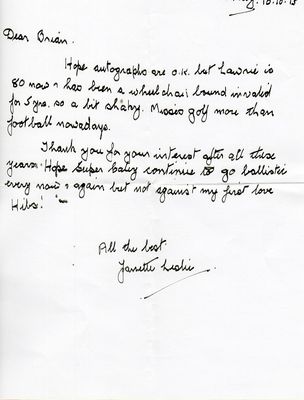 10.10.15
Dear Brian.
Hope autographs are o.k. but Lawrie is
80 now & has been a wheelchair bound invalid
for 5 yrs. so a bit shaky. Misses golf more than
football nowadays.
Thank you for your interest after all these
years. Hope Super Caley continue to go ballistic
every now & again but not against my first love
Hibs!
All the best
Leslie.